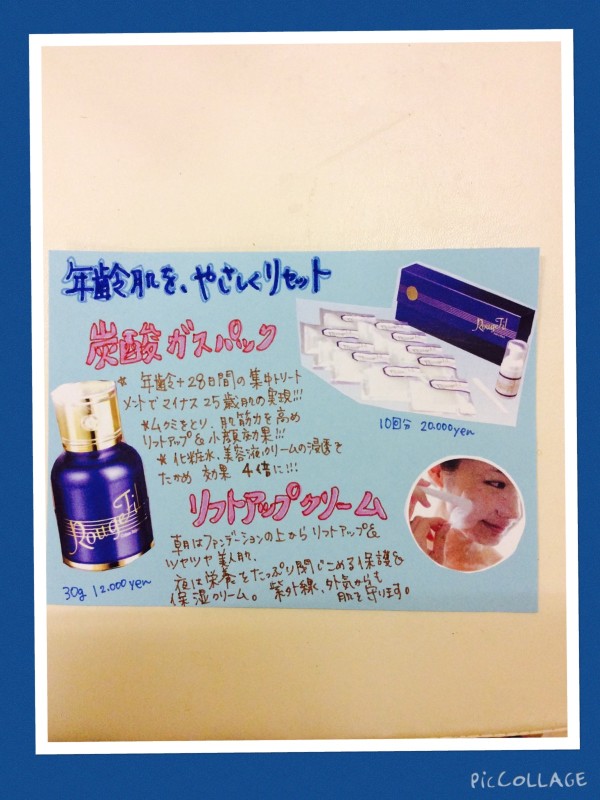 年齢肌を、やさしくリセット
炭酸ガスパック
* 年齢+28日間の集中トリート
メントでマイナス25歳肌の実現!!!
*ムクミをとり、肌筋力を高め
リフトアップ&小顔効果!!!
* 化粧水、美容液、クリームの浸透を
たかめ 効果 4倍に!!!
RougeTi!
10回分 20.000yen
リフトアップクリーム
朝はファンデーションの上から リフトアップ&
ツヤツヤ美人肌、
夜は栄養をたっぷり閉じこめる保護&
保湿クリーム。 紫外線、外気からも
肌を守ります。
RougeTi!
30g 12.000yen
PicCOLLAGE